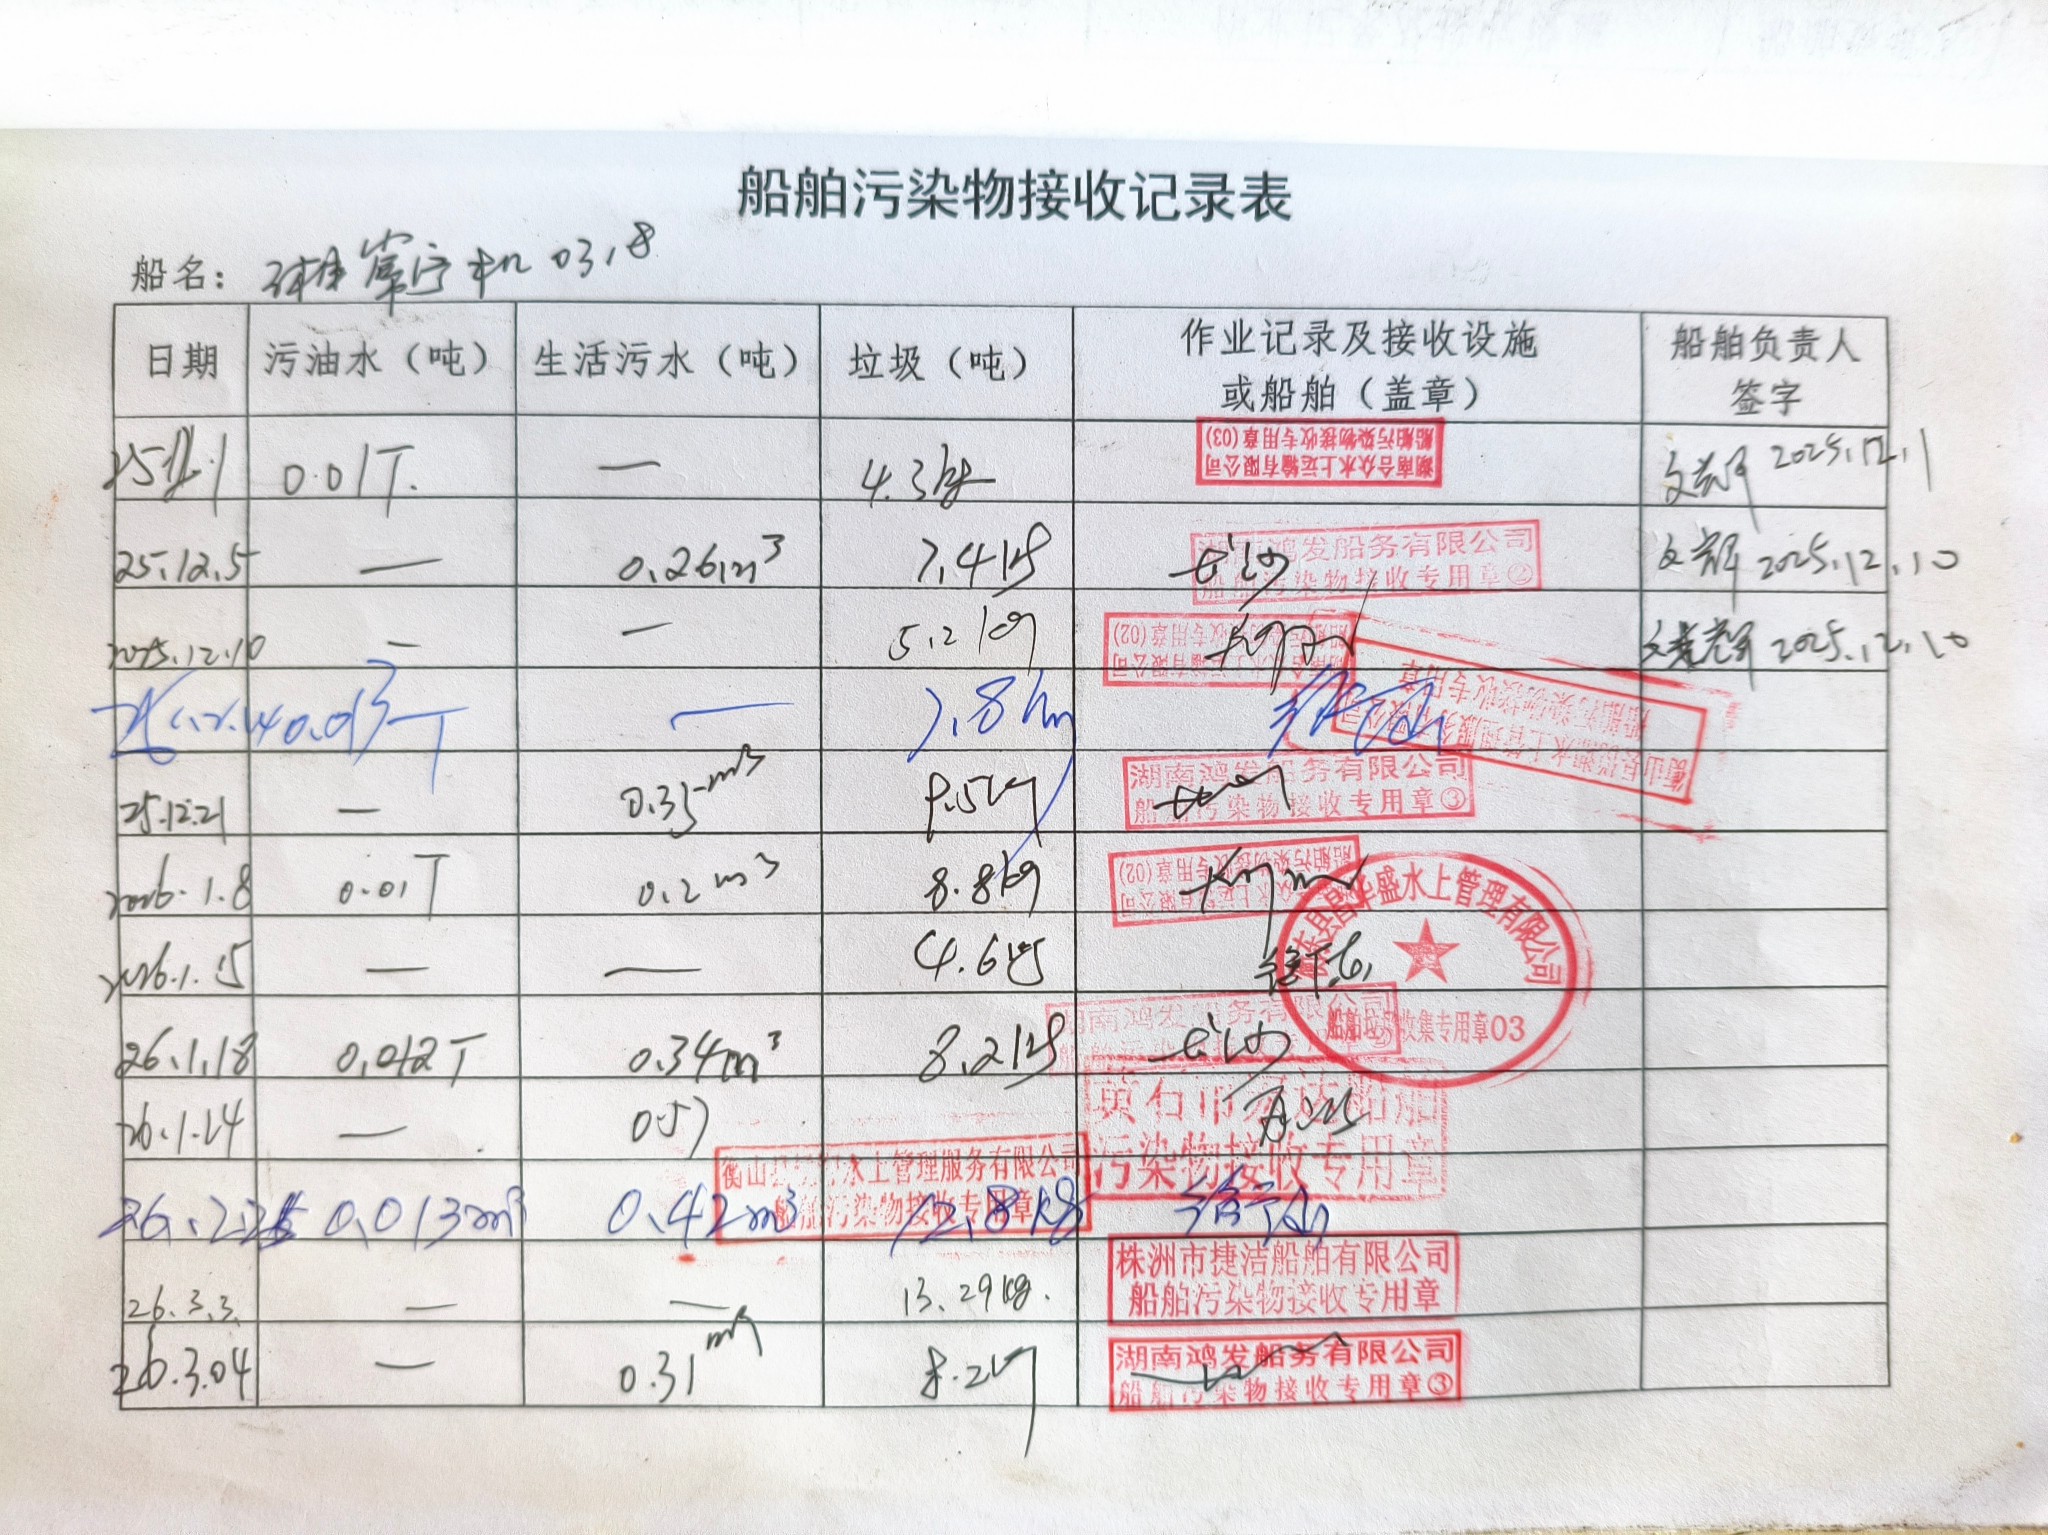 船舶污染物接收记录表
船名: 湘常宁机 0318
日期 污油水（吨） 生活污水（吨） 垃圾（吨） 作业记录及接收设施或船舶（盖章） 船舶负责人签字
0.01T. — 4.3kg 湖南合众水上运输有限公司 船舶污染物接收专用章(03) 2025.12.1
25.12.5 — 0.26m³ 7.4kg 长沙 湖南鸿发船务有限公司 船舶污染物接收专用章② 2025.12.10
2025.12.10 — — 5.2kg 船舶污染物接收专用章(02) 2025.12.10
— 7.8 衡山 水上管理服务有限公司 船舶污染物接收专用章
25.12.21 — 0.35m³ 9.5kg 湖南鸿发船务有限公司 船舶污染物接收专用章③
2026.1.8 0.01T 0.2m³ 8.8kg 船舶污染物接收专用章(02)
2026.1.15 — — 4.6kg 华盛水上管理有限公司 船舶垃圾收集专用章03
26.1.18 0.012T 0.34m³ 8.2kg 长沙 湖南鸿发船务有限公司
26.1.24 — 0.57 黄石市 达船舶 污染物接收专用章
0.013m³ 0.42m³ 12.8kg 衡山县 水上管理服务有限公司 船舶污染物接收专用章
26.3.3. — — 13.29kg. 株洲市捷洁船舶有限公司 船舶污染物接收专用章
26.3.04 — 0.31m³ 8.2kg 湖南鸿发船务有限公司 船舶污染物接收专用章③